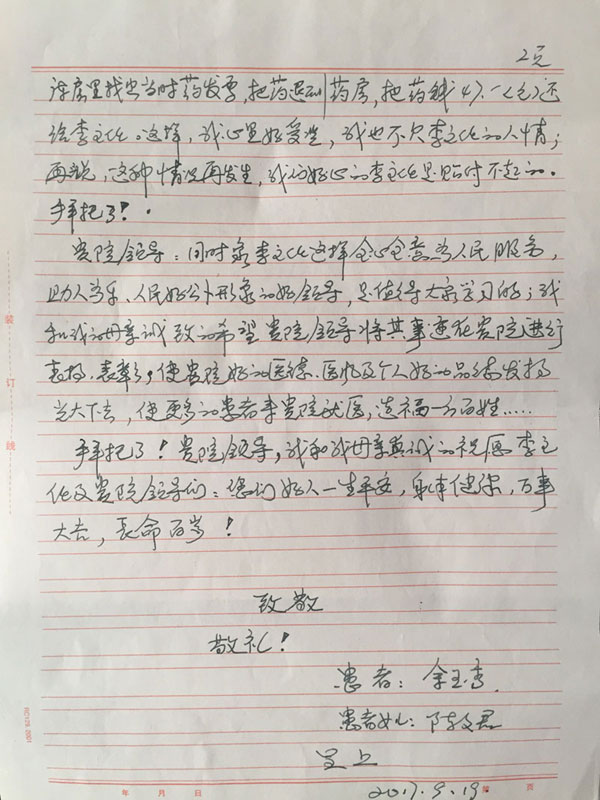 2页
诊房里找出当时药发票，把药退到药房，把药钱41.1(元)还
给李主任。这样，我心里好受些，我也不欠李主任的人情；
再说，这种情况再发生，我们好心的李主任是贴付不起的。
拜托了！
贵院领导：同时象李主任这样全心全意为人民服务，
助人为乐、人民好公仆形象的好领导，是值得大家学习的；我
和我的母亲诚致的希望贵院领导将其事迹在贵院进行
表扬、表彰，使贵院好的医德、医风及个人好的品德发扬
光大下去，使更多的患者来贵院就医，造福一方百姓……
拜托了！贵院领导，我和我母亲真诚的祝愿李主
任及贵院领导们：您们好人一生平安，身体健康，万事
大吉，长命百岁！
致敬
敬礼！
患者：余玉秀
患者女儿：陈
呈上
2017.9.19.
年 月 日 第 页
装
订
线